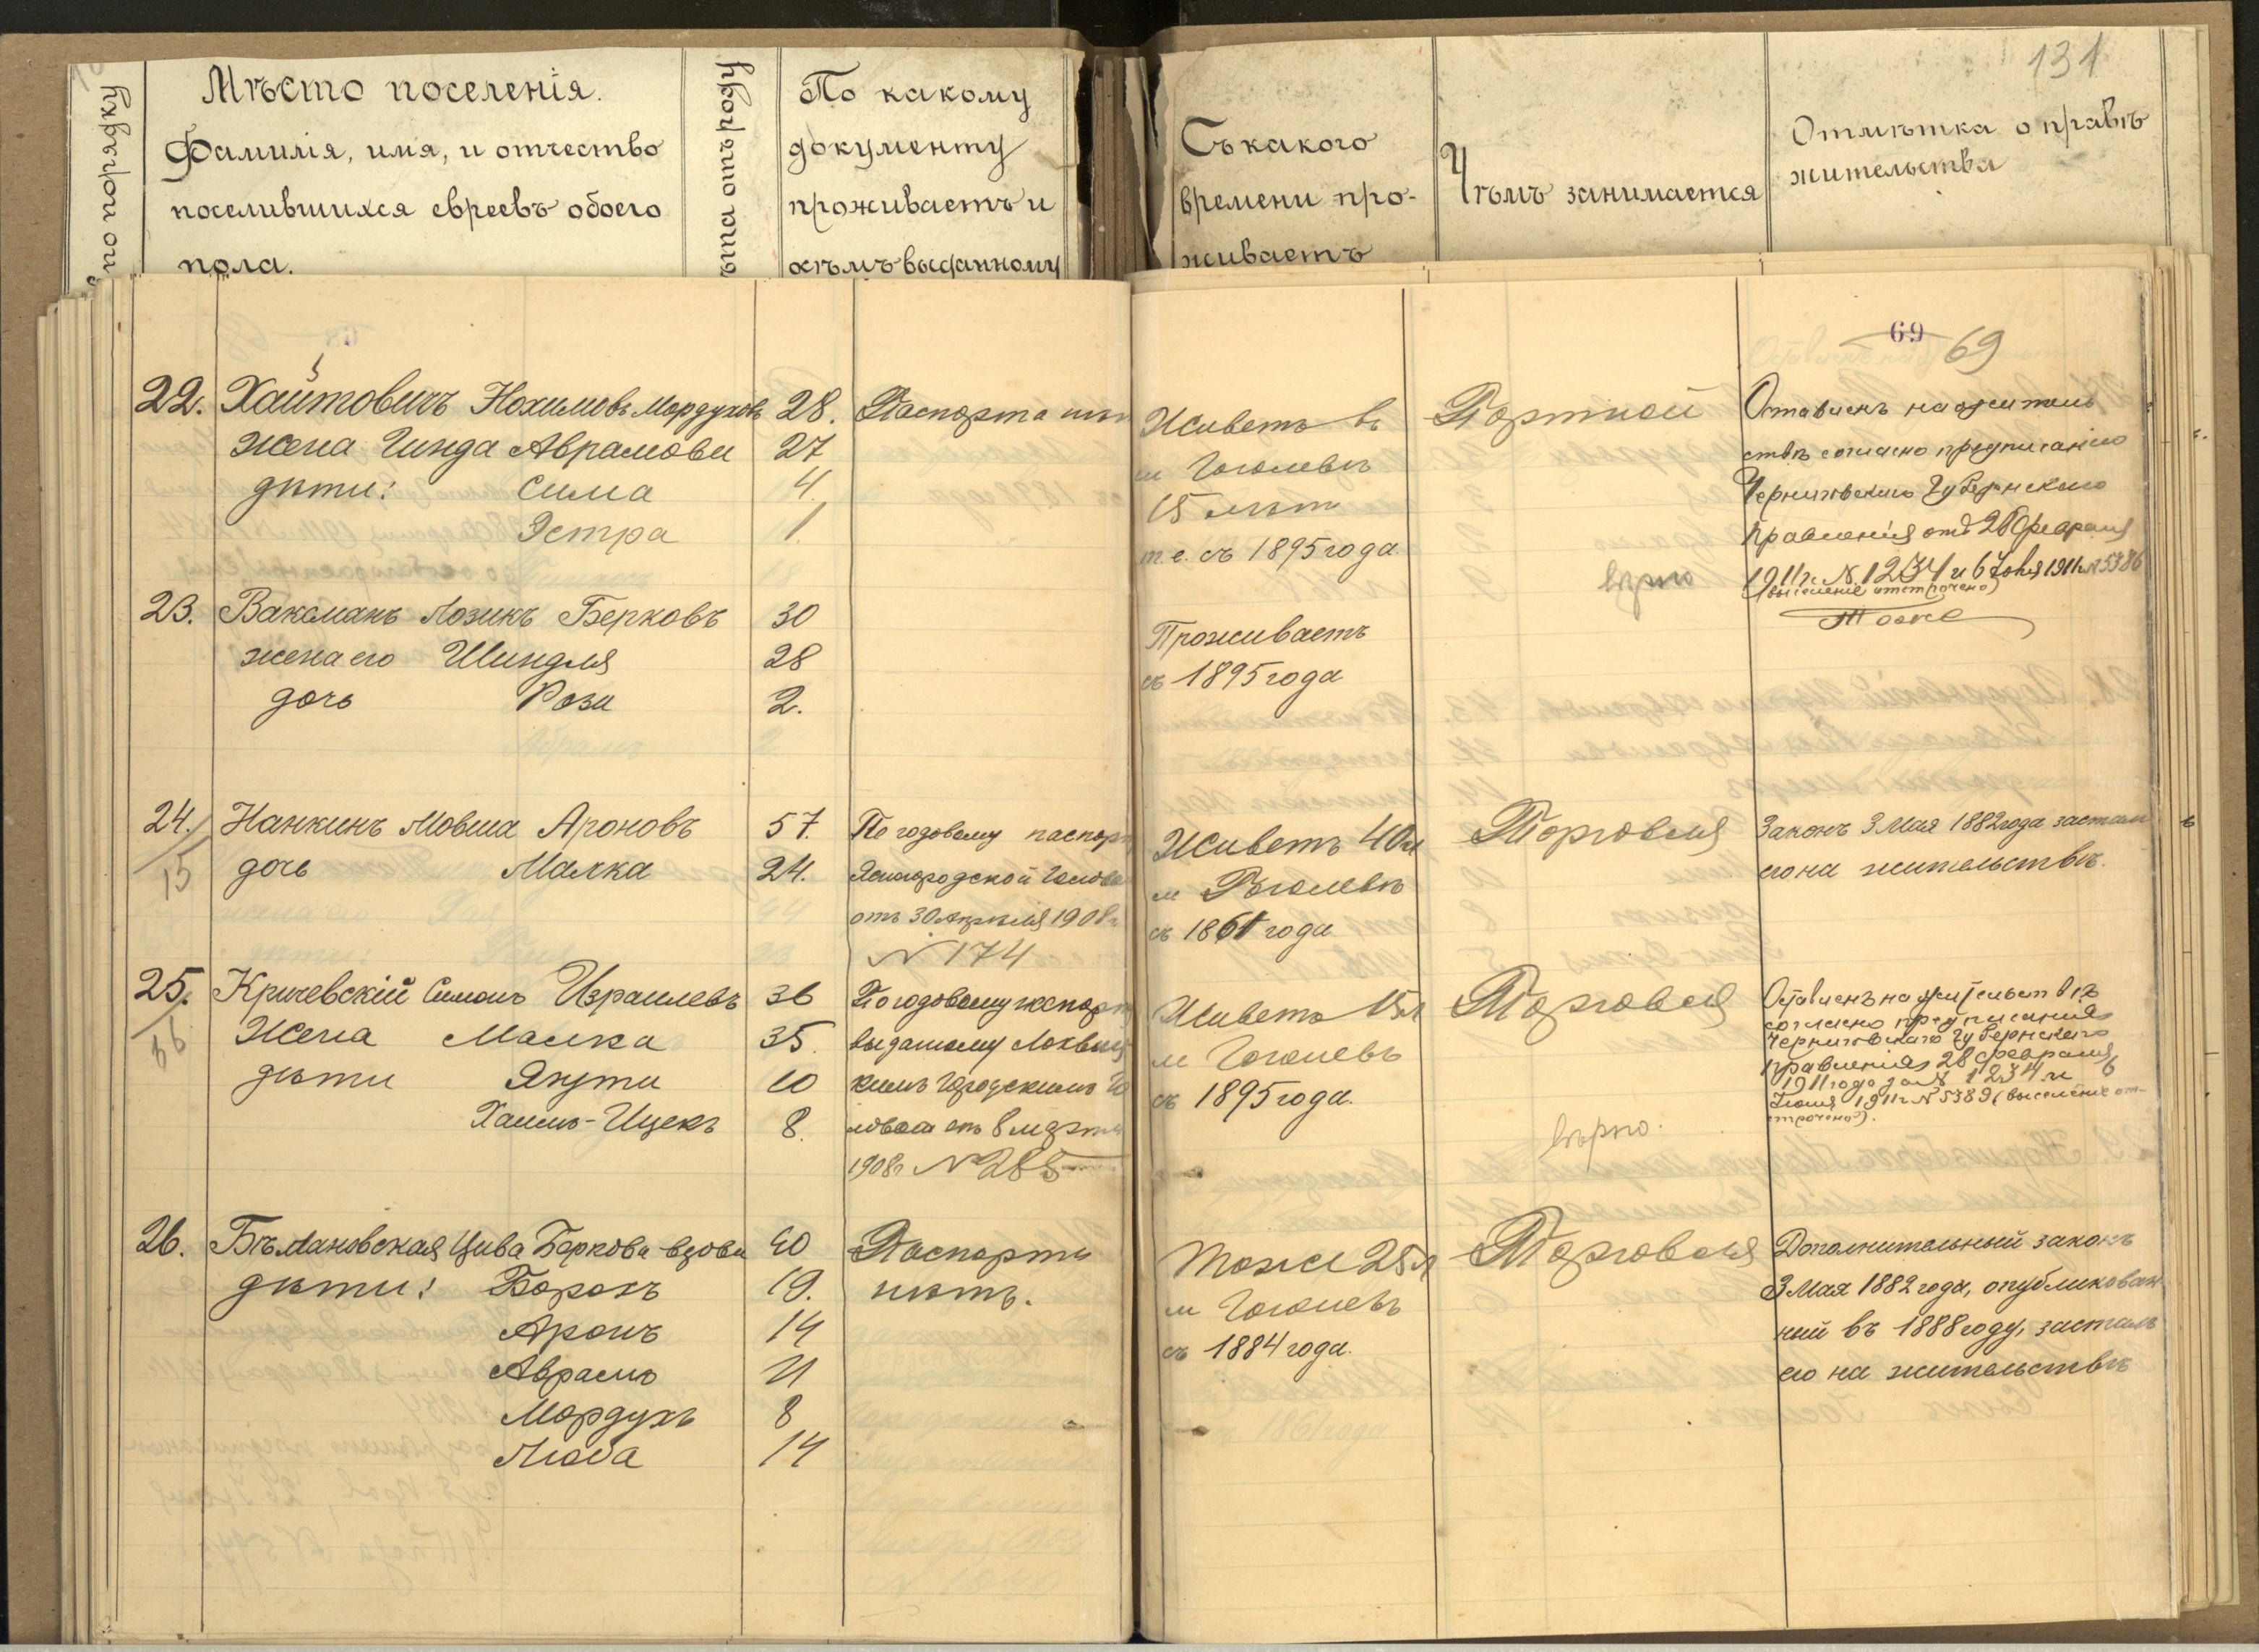 131
по порядку
Мѣсто поселенія.
Фамилія, имя, и отчество
поселившихся евреевъ обоего
пола.
ѣта отъ роду
По какому
документу
проживаетъ и
кѣмъ выданному
Съ какого
времени про-
живаетъ
Чѣмъ занимается
Отмѣтка о правѣ
жительства
69 69
22. Хайтовичъ Нохимовъ Мордуховъ 28. Паспорта
жена Гинда Аврамова 27
дѣти: Сима 4.
Эстра 1.
Живетъ въ
м Гоголевѣ
15 лѣтъ
т.е. съ 1895 года
Портной
вѣрно
Оставленъ на житель
ствѣ согласно предписанію
Черниговскаго Губернскаго
Правленія отъ 28 февраля
1911 г. N. 1234 и 6 Іюня 1911 г N 5386
(выселеніе отсрочено)
23. Ваксманъ Лозикъ Берковъ 30
жена его Шиндля 28
дочь Роза 2.
Проживаетъ
съ 1895 года
Тоже
24. Нанкинъ Мовша Ароновъ 57.
15 дочь Малка 24.
По годовому паспорт
отъ 30 Апрѣля 1908 г
N 174
Живетъ 40 л
м Гоголевѣ
съ 1861 года
Торговля
Законъ 3 Мая 1882 года засталъ
его на жительствѣ.
25. Кричевскій Симонъ Израилевъ 36
Жена Малка 35.
дѣти 10
Хаимъ-Ицекъ 8.
По годовому паспорт
выданному Лохвиц
кимъ Городскимъ Го
ловой отъ 8 марта
1908 г N 285
Живетъ 15 л
м Гоголевъ
съ 1895 года.
Торговля
вѣрно.
Оставленъ на жительствѣ
согласно предписанія
Черниговскаго Губернскаго
правленія 28 февраля
1911 года за N 1234 и 6
Іюня 1911 г N 5389 (выселеніе от-
строчено).
26. Цива Беркова вдова 40
дѣти: Борохъ 19.
Аронъ 14
Аврамъ 11
Мордухъ 8
Люба 14
Паспорта
нѣтъ.
Тоже 25 л
м Гоголевъ
съ 1884 года.
Торговля
Дополнительный законъ
3 Мая 1882 года, опубликован
ный въ 1888 году, засталъ
его на жительствѣ